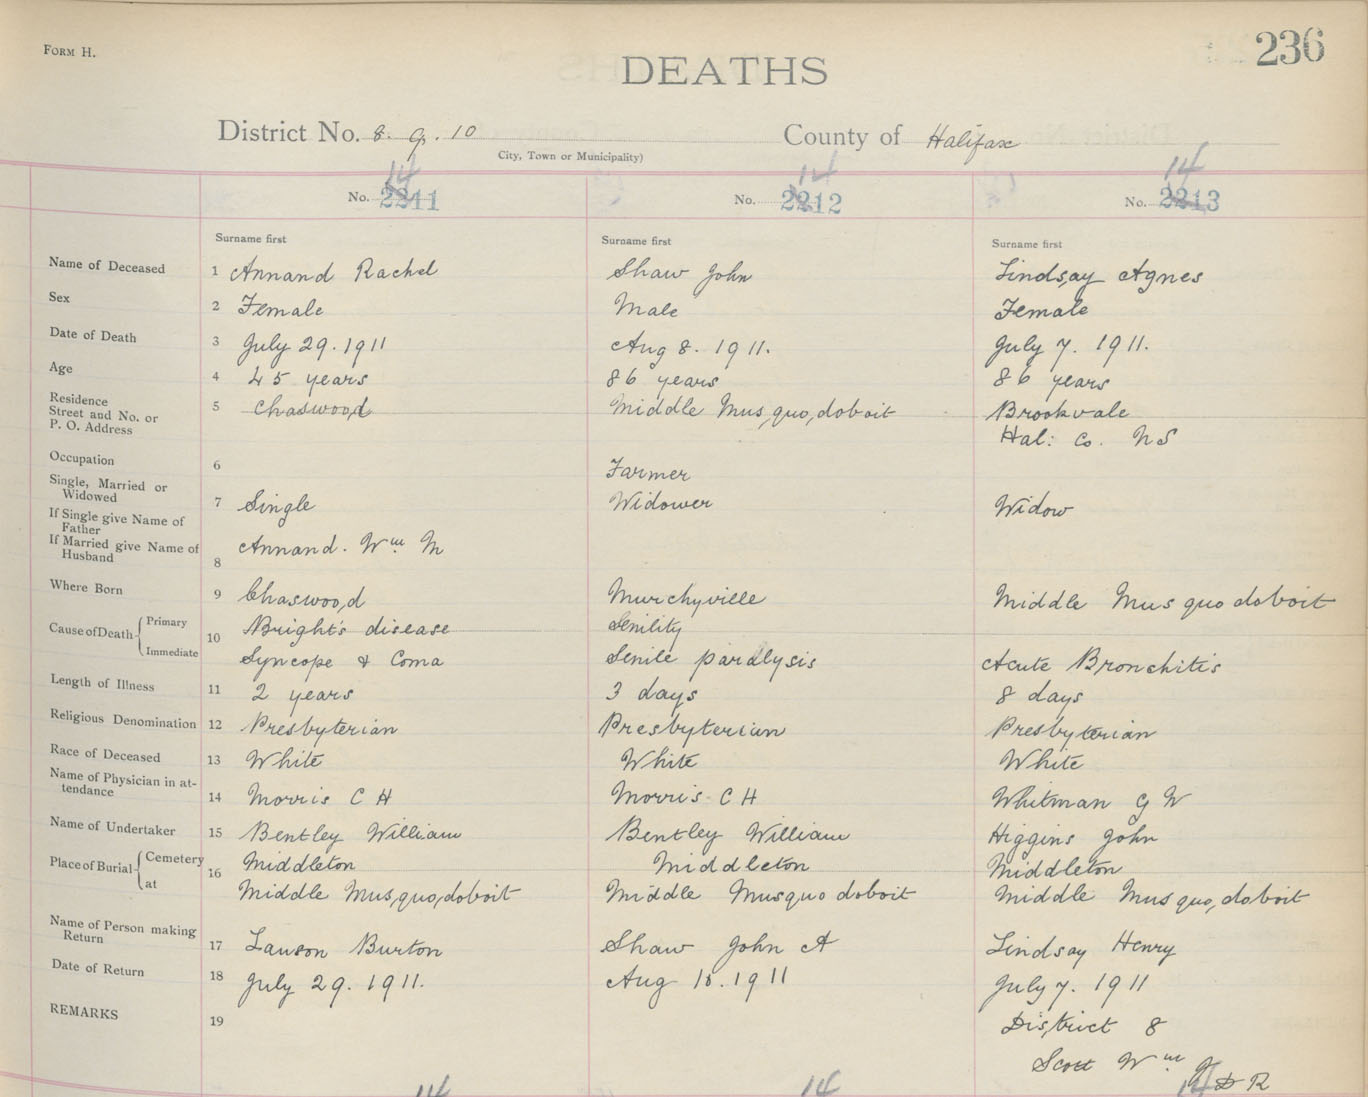 FORM H.
236
DEATHS
District No. 8. 9. 10
County of Halifax
City, Town or Municipality)
14 14 14
No. 2211 No. 2212 No. 2213
Surname first Surname first Surname first
Name of Deceased 1 Annand Rachel Shaw John Lindsay Agnes
Sex 2 Female Male Female
Date of Death 3 July 29. 1911 Aug 8. 1911. July 7. 1911.
Age 4 45 years 86 years 86 years
Residence
Street and No. or
P. O. Address 5 Chaswood Middle Musquodoboit Brookvale
Hal: Co. N S
Occupation 6 Farmer
Single, Married or
Widowed 7 Single Widower Widow
If Single give Name of
Father
If Married give Name of
Husband 8 Annand. Wm M
Where Born 9 Chaswood Murchyville Middle Musquodoboit
Cause of Death Primary 10 Bright's disease Senility
Immediate Syncope & Coma Senile paralysis Acute Bronchitis
Length of Illness 11 2 years 3 days 8 days
Religious Denomination 12 Presbyterian Presbyterian Presbyterian
Race of Deceased 13 White White White
Name of Physician in at-
tendance 14 Morris C H Morris C H Whitman G W
Name of Undertaker 15 Bentley William Bentley William Higgins John
Place of Burial Cemetery 16 Middleton Middleton Middleton
at Middle Musquodoboit Middle Musquodoboit Middle Musquodoboit
Name of Person making
Return 17 Lauson Burton Shaw John A Lindsay Henry
Date of Return 18 July 29. 1911. Aug 1911 July 7. 1911
REMARKS 19 District 8
Scott Wm J
D R
14 14 14